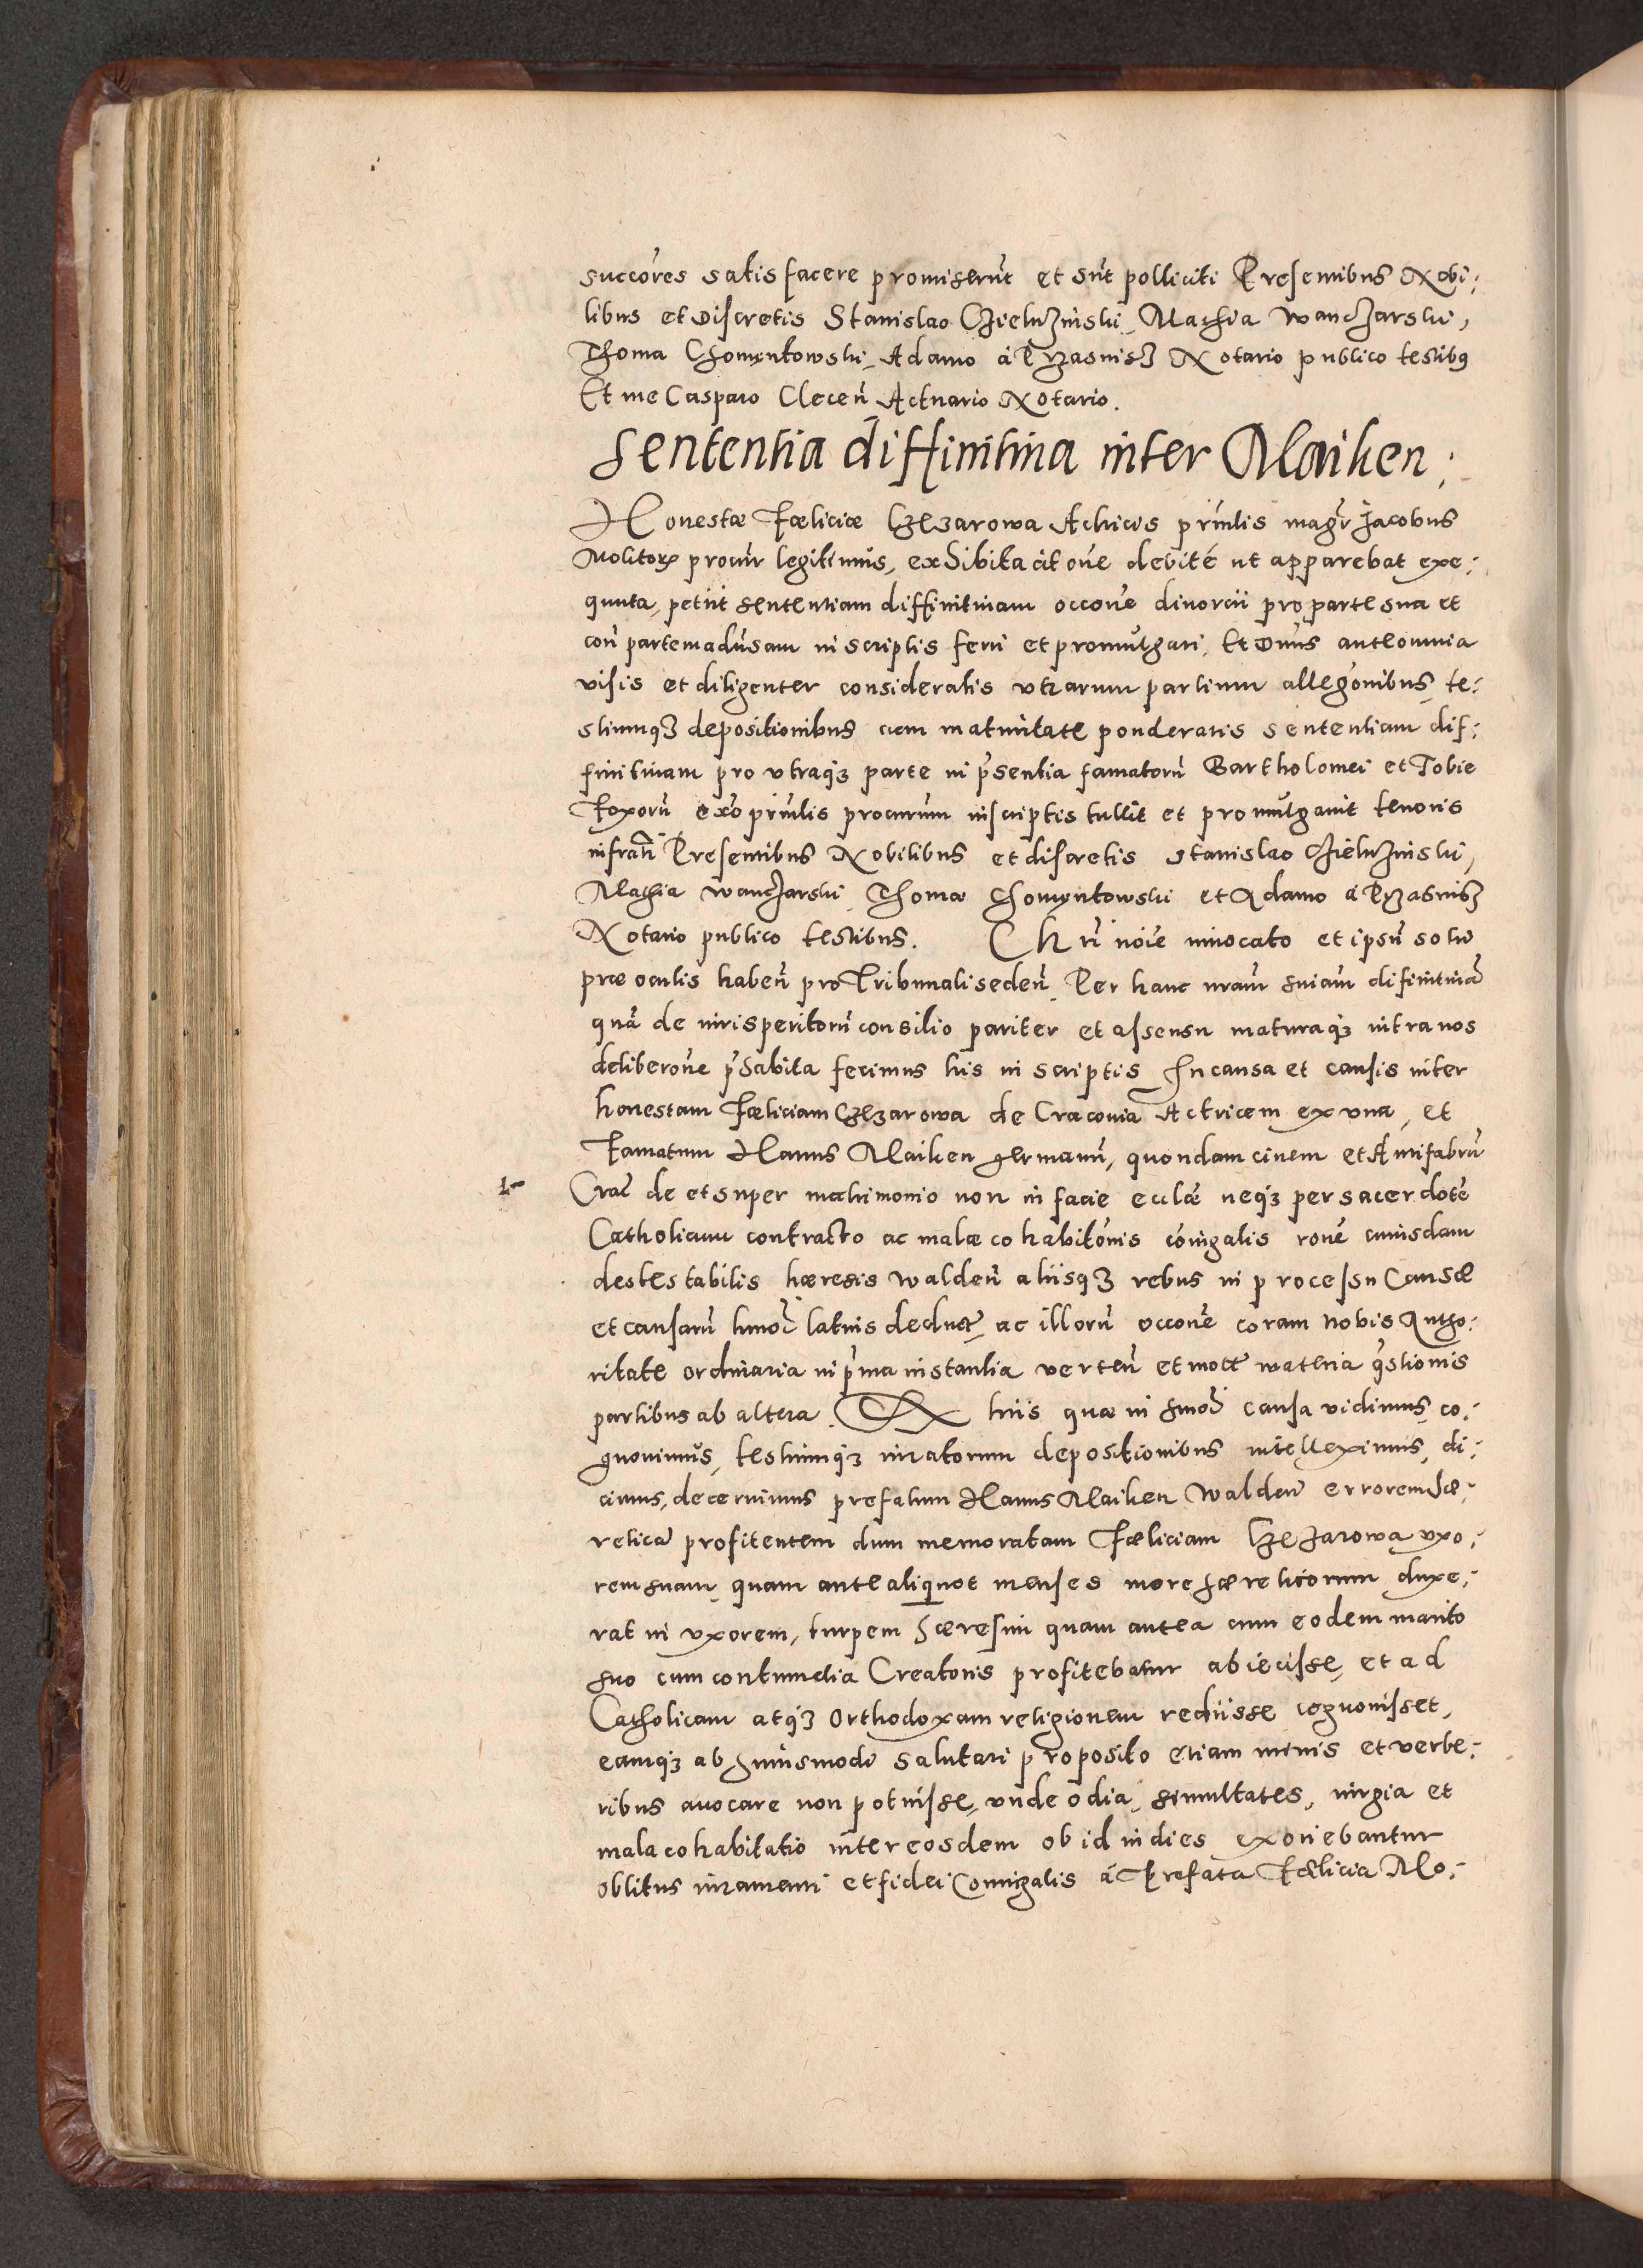 succores satisfacere promiserūt et sūt polliciti Presentibus Nobi:
libus et Discretis Stanislao Chielnznski, Mathia Wanczarski,
Thoma Chomyntowski, Adamo à Przasnisz Notario publico testibus
Et me Casparo Clecen̄ Actuario Notario.
Sententia diffinitiua inter Maiken.
Honestæ Fœliciæ Czezarowa Actricis prin̄lis magr̄ Jacobus
Molitor procur̄ legitimus, exhibita citōne debité ut apparebat exe:
quuta, petiit sententiam diffinitiuam occōne diuorcii pro parte sua et
con̄ partem aduersam in scriptis ferri et promulgari. Et Dn̄us ante omnia
visis et diligenter consideratis vtrarum partium allegōnibus, te:
stiumq3 depositionibus cum maturitate ponderatis sententiam dif:
finitiuam pro vtraq3 parte in pn̄sentia famatorū Bartholomei et Tobie
Foxorū exō prin̄lis procurum in scriptis tullit et promulgauit tenoris
infrāti Presentibus Nobilibus et discretis Stanislao Chielnznski,
Mathia Wanczarski, Thoma Chomyntowski et Adamo à Przasnisz
Notario publico testibus. Chri noīe inuocato et ipsū solū
præ oculis haben̄ pro Tribunali seden̄ Per hanc nrām sniām difinitiuā
quā de iurisperitorū consilio pariter et assensu maturaq3 intra nos
deliberōne p̄habita fecimus his in scriptis In causa et causis inter
honestam Fœliciam Czezarowa de Cracouia Actricem ex vna, et
Famatum Hanus Maiken germanū, quondam ciuem et Aurifabrū
Crac̄ de et super matrimonio non in facie ecclæ neq3 per sacerdotē
Catholicum contracto ac malæ cohabitōnis cōiugalis rōne cuiusdam
destestabilis hæresis Walden̄ aliisq3 rebus in processu Causæ
et causarū hmōi latius deduct̄ ac illorū occōne coram nobis Autho:
ritate ordinaria in p̄ma instantia verten̄ et mot̄ materia q̄stionis
partibus ab altera. Ex hiis quæ in hmōi causa vidimus, co:
gnouimus, testiumq3 iuratorum depositionibus intelleximus, di:
cimus, decernimus prefatum Hanus Maiken Walden̄ errorem hæ:
reticū profitentem dum memoratam Fœliciam Czezarowa vxo:
rem suam, quam ante aliquot menses more hæreticorum duxe:
rat in vxorem, turpem hæresim quam antea cum eodem marito
suo cum contumelia Creatoris profitebatur abiecisse, et ad
Catholicam atq3 Orthodoxam religionem rediisse cognouisset,
eamq3 ab huiusmodi salutari proposito etiam minis et verbe:
ribus auocare non potuisse, vnde odia, simultates, iurgia et
mala cohabitatio inter eosdem ob id in dies exoriebantur
oblitus iuramenti et fidei Coniugalis à Prefata Fœlicia Mo: